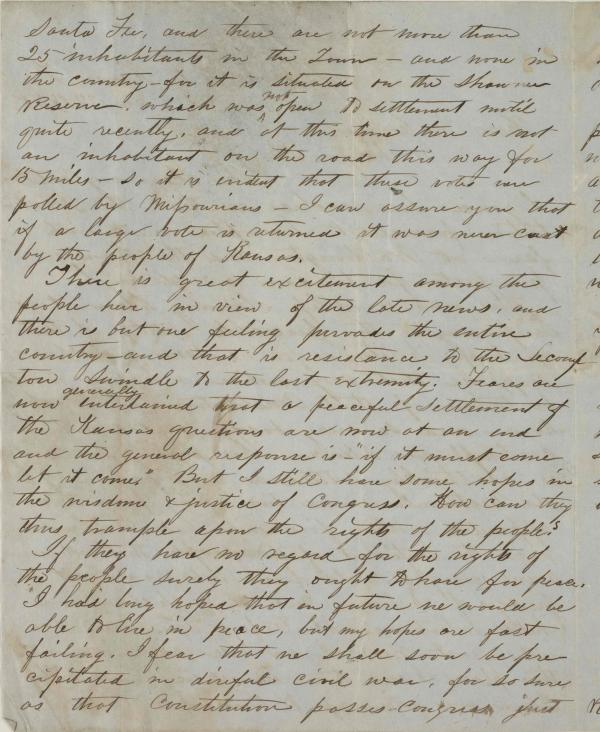 Santa Fee, and there are not more than
25 inhabitants in the Town - and none in
the country - for it is situated on the Shawnee
Reserve. which was not open to settlement until
quite recently, and at this time there is not
an inhabitant on the road this way for
15 miles - so it is evident that these votes were
polled by Missourians - I can assure you that
if a large vote is returned it was never cast
by the people of Kansas.
There is great excitement among the
people here in view of the late news, and
there is but one feeling pervades the entire
country - and that is resistance to the Lecomp
ton Swindle to the last extremity. Feares are
now generally entertained that a peaceful settlement of
the Kansas questions are now at an end
and the general response is - "if it must come
let it come." But I still have some hopes in
the wisdome & justice of Congress. How can they
thus trample upon the rights of the people?
If they have no regard for the rights of
the people surely they ought to have for peace.
I had long hoped that in future we would be
able to live in peace, but my hopes are fast
failing. I fear that we shall soon be pre
cipitated in direful civil war, for so sure
as that Constitution passes Congress just